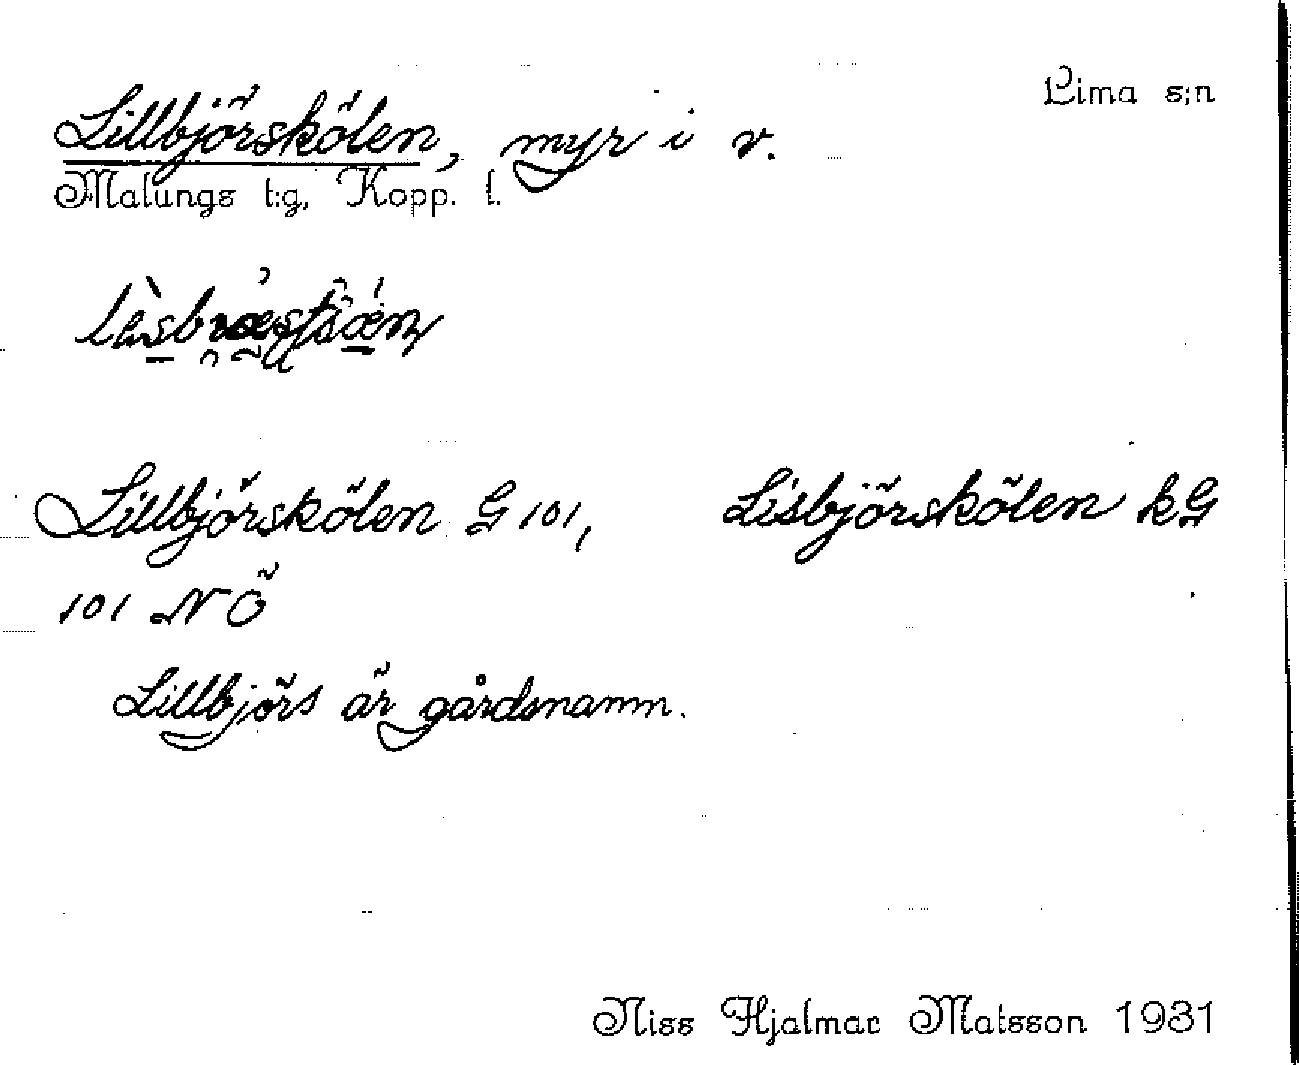 Lima s:n
Lillbjörskölen, myr i v.
Malungs t:g, Kopp. l.
Lillbjörskölen G 101, Lisbjörskölen kG
101 NÖ
Lillbjörs är gårdsnamn.
Niss Hjalmar Matsson 1931